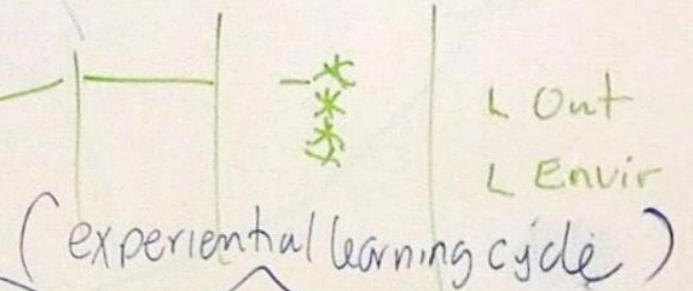 L Out
L Envir
(experiential learning cycle)